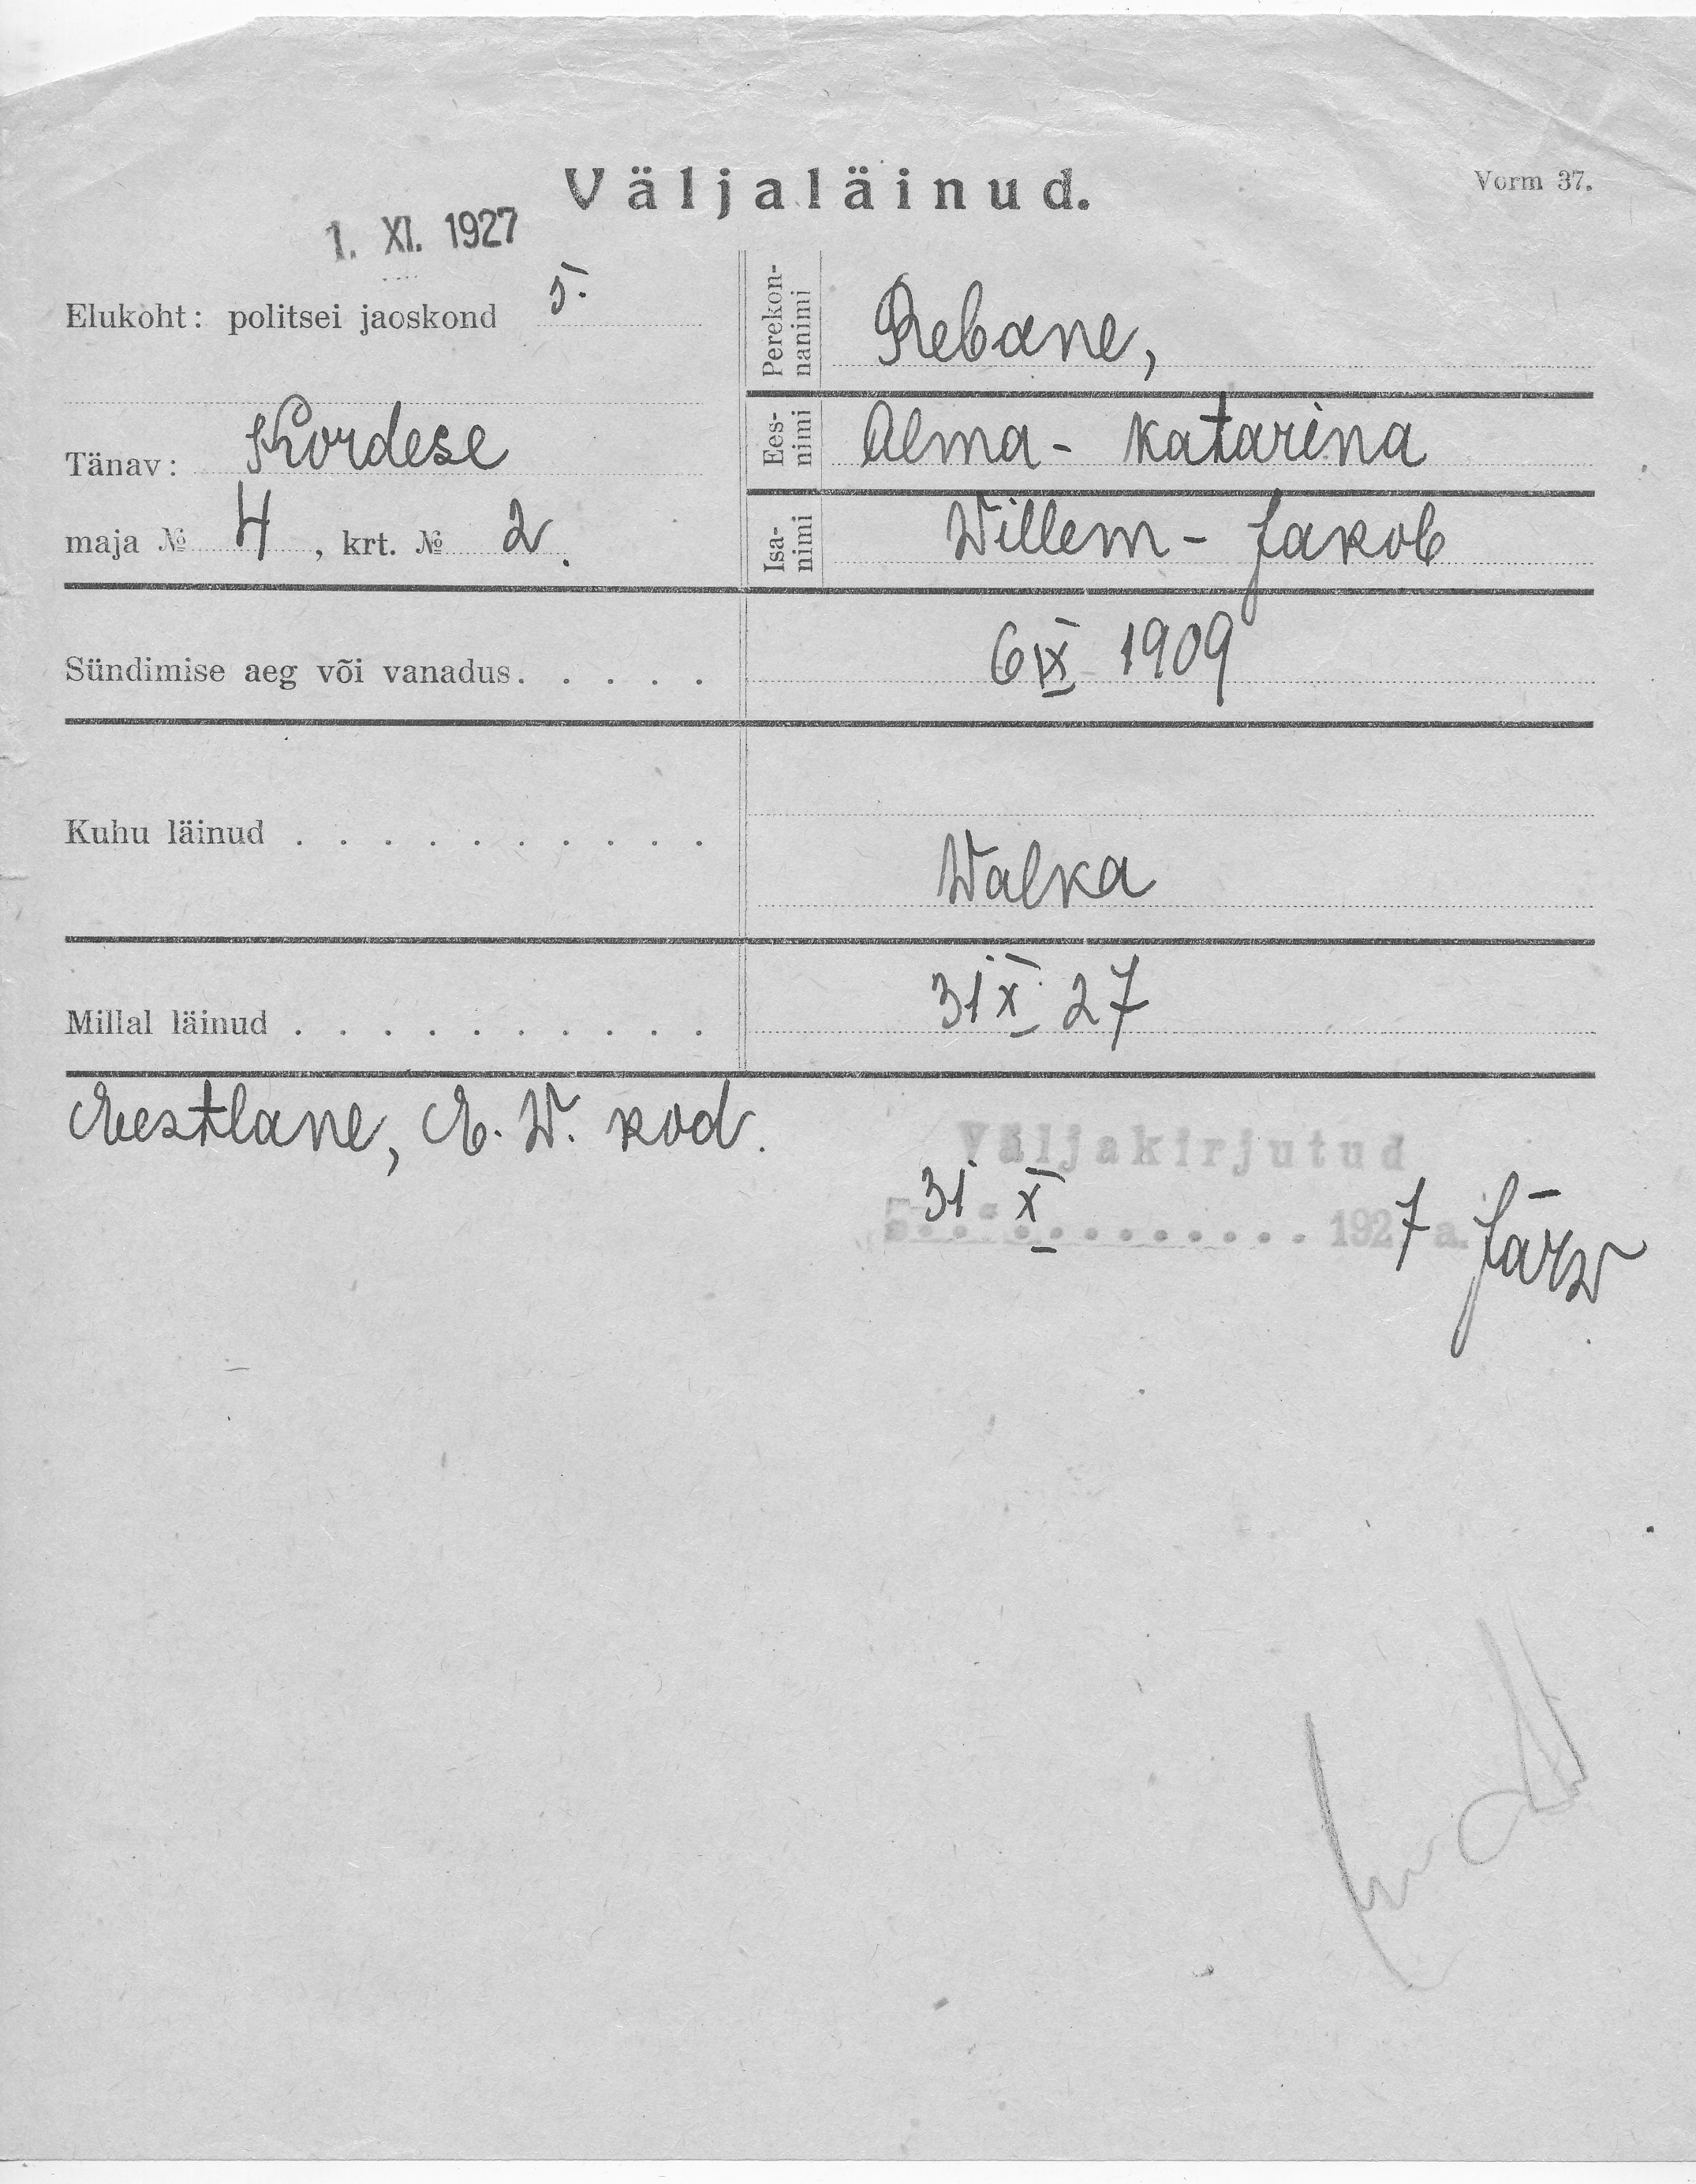 Väljaläinud.
Vorm 37.
1. XI. 1927
Elukoht: politsei jaoskond 5.
Tänav: Kordese
maja № 4, krt. № 2.
Perekon-
nanimi
Rebane,
Ees-
nimi
Alma- Katarina
Isa-
nimi
Willem- Jakob
Sündimise aeg või vanadus. . . . . 6 IX 1909
Kuhu läinud . . . . . . . . . . Walka
Millal läinud . . . . . . . . . . 31 X 27
Eestlane, E. W. kod.
Väljakirjutud
31 X 1927 a. Järw